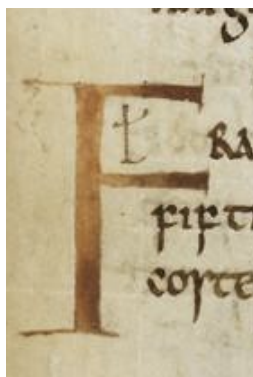 FRA
fift
coste